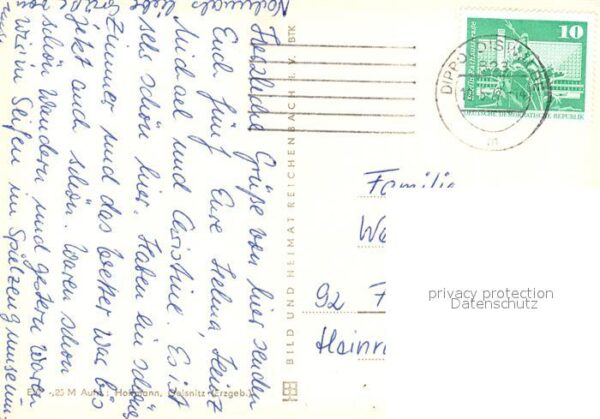 Herzliche Grüße von hier senden
Euch fünf Eure Helma, Heinz
Michael und Christine. Es ist
sehr schön hier. Haben ein schönes
Zimmer und das Wetter war bis
jetzt auch schön. Waren schon
schön Wandern und gestern waren
wir in Seiffen im Spielzeugmuseum
Nochmals liebe
Grüße von
BILD UND HEIMAT REICHENBACH I. V. BTK
-,25 M Aufn.: Hoffmann, (Erzgeb.)
10
DEUTSCHE DEMOKRATISCHE REPUBLIK
DIPPOLDISWALDE
Familie
We
92 F
Heinri
privacy protection
Datenschutz